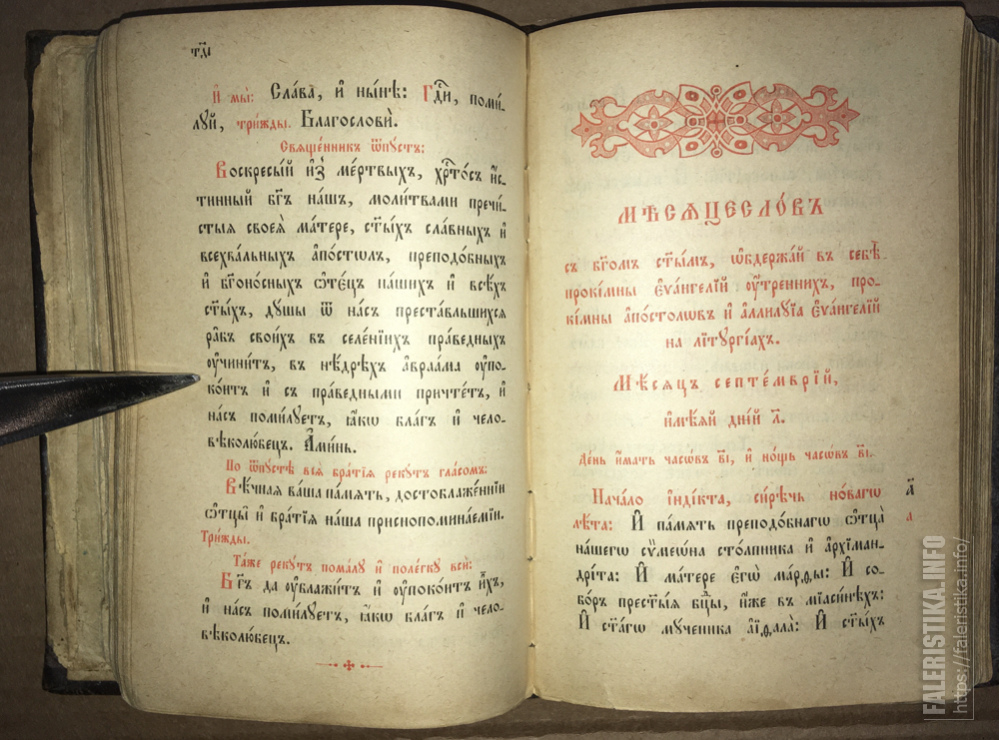 тд҃і
И҆ мы̀: Сла́ва, и҆ ны́нѣ: Гдⷭ҇и, поми́-
луй, три́жды. Благословѝ.
Свяще́нникъ ѿпꙋ́стъ:
Воскресы́й и҆з̾ ме́ртвыхъ, хрⷭ҇то́съ и҆́с-
тинный бг҃ъ на́шъ, моли́твами пречи́-
стыя своеѧ̀ ма́тере, ст҃ы́хъ сла́вныхъ и҆
всехва́льныхъ а҆пⷭ҇то́лъ, преподо́бныхъ
и҆ бг҃оно́сныхъ ѻ҆те́цъ на́шихъ и҆ всѣ́хъ
ст҃ы́хъ, дꙋ́шы ѿ на́съ преста́вльшихся
ра̑бъ свои́хъ въ селе́нїихъ првⷣедныхъ
ᲂу҆чини́тъ, въ нѣ́дрѣхъ а҆враа́ма ᲂу҆по-
ко́итъ и҆ съ пра́ведными причте́тъ, и҆
на́съ поми́лꙋетъ, ꙗ҆́кѡ бла́гъ и҆ чело-
вѣколю́бецъ. А҆ми́нь.
По ѿпꙋ́стѣ всѝ бра́тїя рекꙋ́тъ гла́сомъ:
Вѣ́чная ва́ша па́мять, достоблаже́ннїи
ѻ҆тцы̀ и҆ бра́тїя на́ша приснопомина́емїи.
Три́жды.
Та́же рекꙋ́тъ пома́лꙋ и҆ поле́гкꙋ всѝ:
Бг҃ъ да ᲂу҆блажи́тъ и҆ ᲂу҆поко́итъ и҆̀хъ,
и҆ на́съ поми́лꙋетъ, ꙗ҆́кѡ бла́гъ и҆ чело-
вѣколю́бецъ.
МѢСѦЦЕСЛО́ВЪ
съ бг҃омъ ст҃ы́мъ, ѡ҆бдержа́й въ себѣ̀
прокі́мны є҆ѵа́нгелїй ᲂу҆́тренних, про-
кі́мны а҆пⷭ҇толѡвъ и҆ а҆ллилꙋ́їа є҆ѵа́нгелїй
на лїтꙋргі́ахъ.
Мѣ́сяцъ септе́мврїй,
и҆мѣ́яй дні́й л҃.
Де́нь и҆́мать часѡ́въ в҃і, и҆ но́щь часѡ́въ в҃і.
Нача́ло і҆нді́кта, си́рѣчь но́вагѡ
лѣ́та: И҆ па́мять преподо́бнагѡ ѻ҆тца̀
на́шегѡ сѷмеѡ́на сто́лпника и҆ а҆рхїман-
дрі́та: И҆ ма́тере є҆гѡ̀ ма́рѳы: И҆ со-
бо́ръ прест҃ы́я бцⷣы, и҆́же въ мїасине́хъ:
И҆ ст҃а́гѡ мꙋ́ченика а҆їѳала̀: И҆ ст҃ы́хъ
а҃
а
FALERISTIKA.INFO
https://faleristika.info/